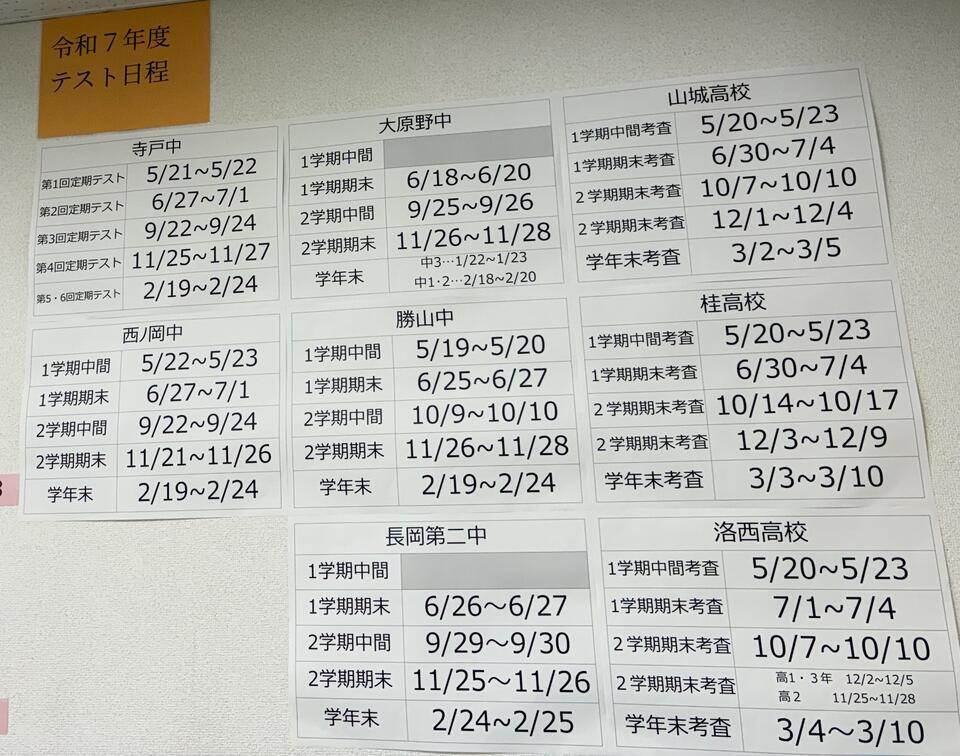 令和７年度
テスト日程
寺戸中
第1回定期テスト 5/21~5/22
第2回定期テスト 6/27~7/1
第3回定期テスト 9/22~9/24
第4回定期テスト 11/25~11/27
第5・6回定期テスト 2/19~2/24
大原野中
1学期中間
1学期期末 6/18~6/20
2学期中間 9/25~9/26
2学期期末 11/26~11/28
学年末 中3…1/22~1/23
中1・2…2/18~2/20
山城高校
1学期中間考査 5/20~5/23
1学期期末考査 6/30~7/4
２学期期末考査 10/7~10/10
２学期期末考査 12/1~12/4
学年末考査 3/2~3/5
西ノ岡中
1学期中間 5/22~5/23
1学期期末 6/27~7/1
2学期中間 9/22~9/24
2学期期末 11/21~11/26
学年末 2/19~2/24
勝山中
1学期中間 5/19~5/20
1学期期末 6/25~6/27
2学期中間 10/9~10/10
2学期期末 11/26~11/28
学年末 2/19~2/24
桂高校
1学期中間考査 5/20~5/23
1学期期末考査 6/30~7/4
２学期期末考査 10/14~10/17
２学期期末考査 12/3~12/9
学年末考査 3/3~3/10
長岡第二中
1学期中間
1学期期末 6/26～6/27
2学期中間 9/29～9/30
2学期期末 11/25～11/26
学年末 2/24~2/25
洛西高校
1学期中間考査 5/20~5/23
1学期期末考査 7/1~7/4
２学期期末考査 10/7~10/10
２学期期末考査 高1・３年 12/2~12/5
高２ 11/25~11/28
学年末考査 3/4~3/10